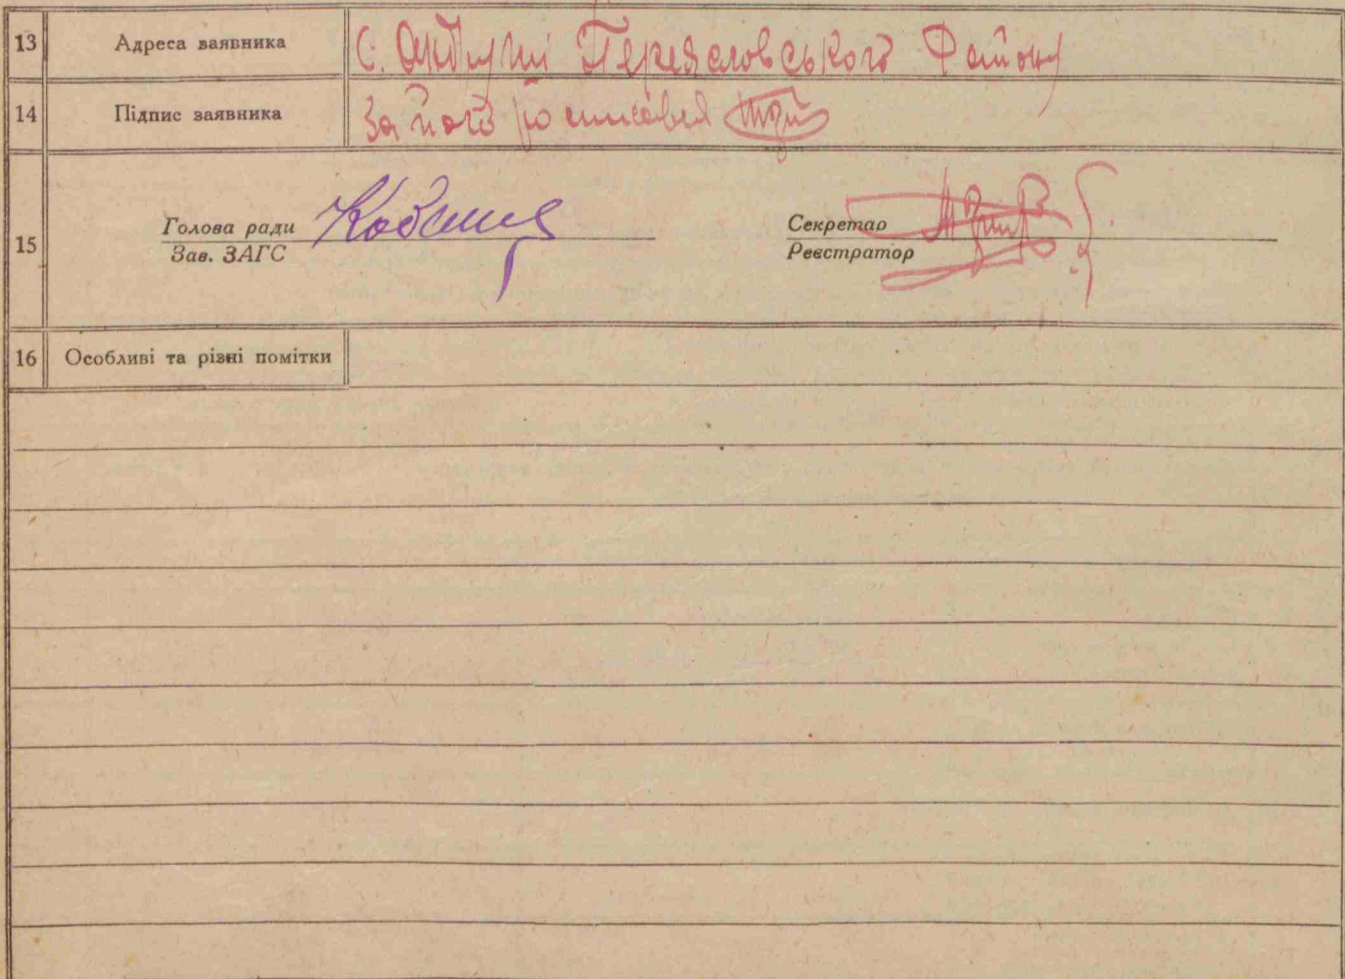 13 Адреса заявника С. Переясловського Району
14 Підпис заявника За його росписався
15 Голова ради
Зав. ЗАГС
Секретар
Реєстратор
16 Особливі та різні помітки